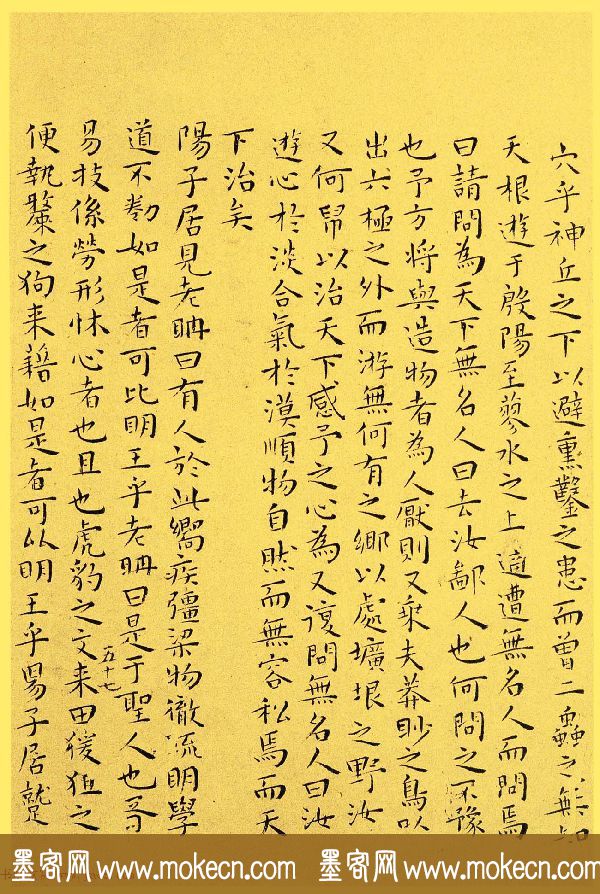 墨客网 www.mokecn.com 墨客网 www.mokecn.com
穴乎神丘之下以避熏鑿之患而曾二蟲之無知
天根遊于殷陽至蓼水之上適遭無名人而問焉
曰請問為天下無名人曰去汝鄙人也何問之不豫
也予方將與造物者為人厭則又乘夫莽眇之鳥以
出六極之外而游無何有之鄉以處壙垠之野汝
又何帠以治天下感予之心為又復問無名人曰汝
遊心於淡合氣於漠順物自然而無容私焉而天
下治矣
陽子居見老聃曰有人於此嚮疾彊梁物徹疏明學
道不勌如是者可比明王乎老聃曰是于聖人也胥
易技係勞形怵心者也且也虎豹之文来田猨狙之
五十七
便執斄之狗来藉如是者可以明王乎陽子居蹵
墨客网 www.mokecn.com 墨客网 www.mokecn.com